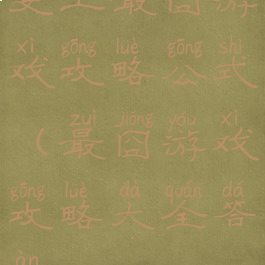 史上最囧游
xì gōng lüè gōng shì
戏攻略公式
zuì jiǒng yóu xì
（最囧游戏
gōng lüè dà quán dá
攻略大全答
àn